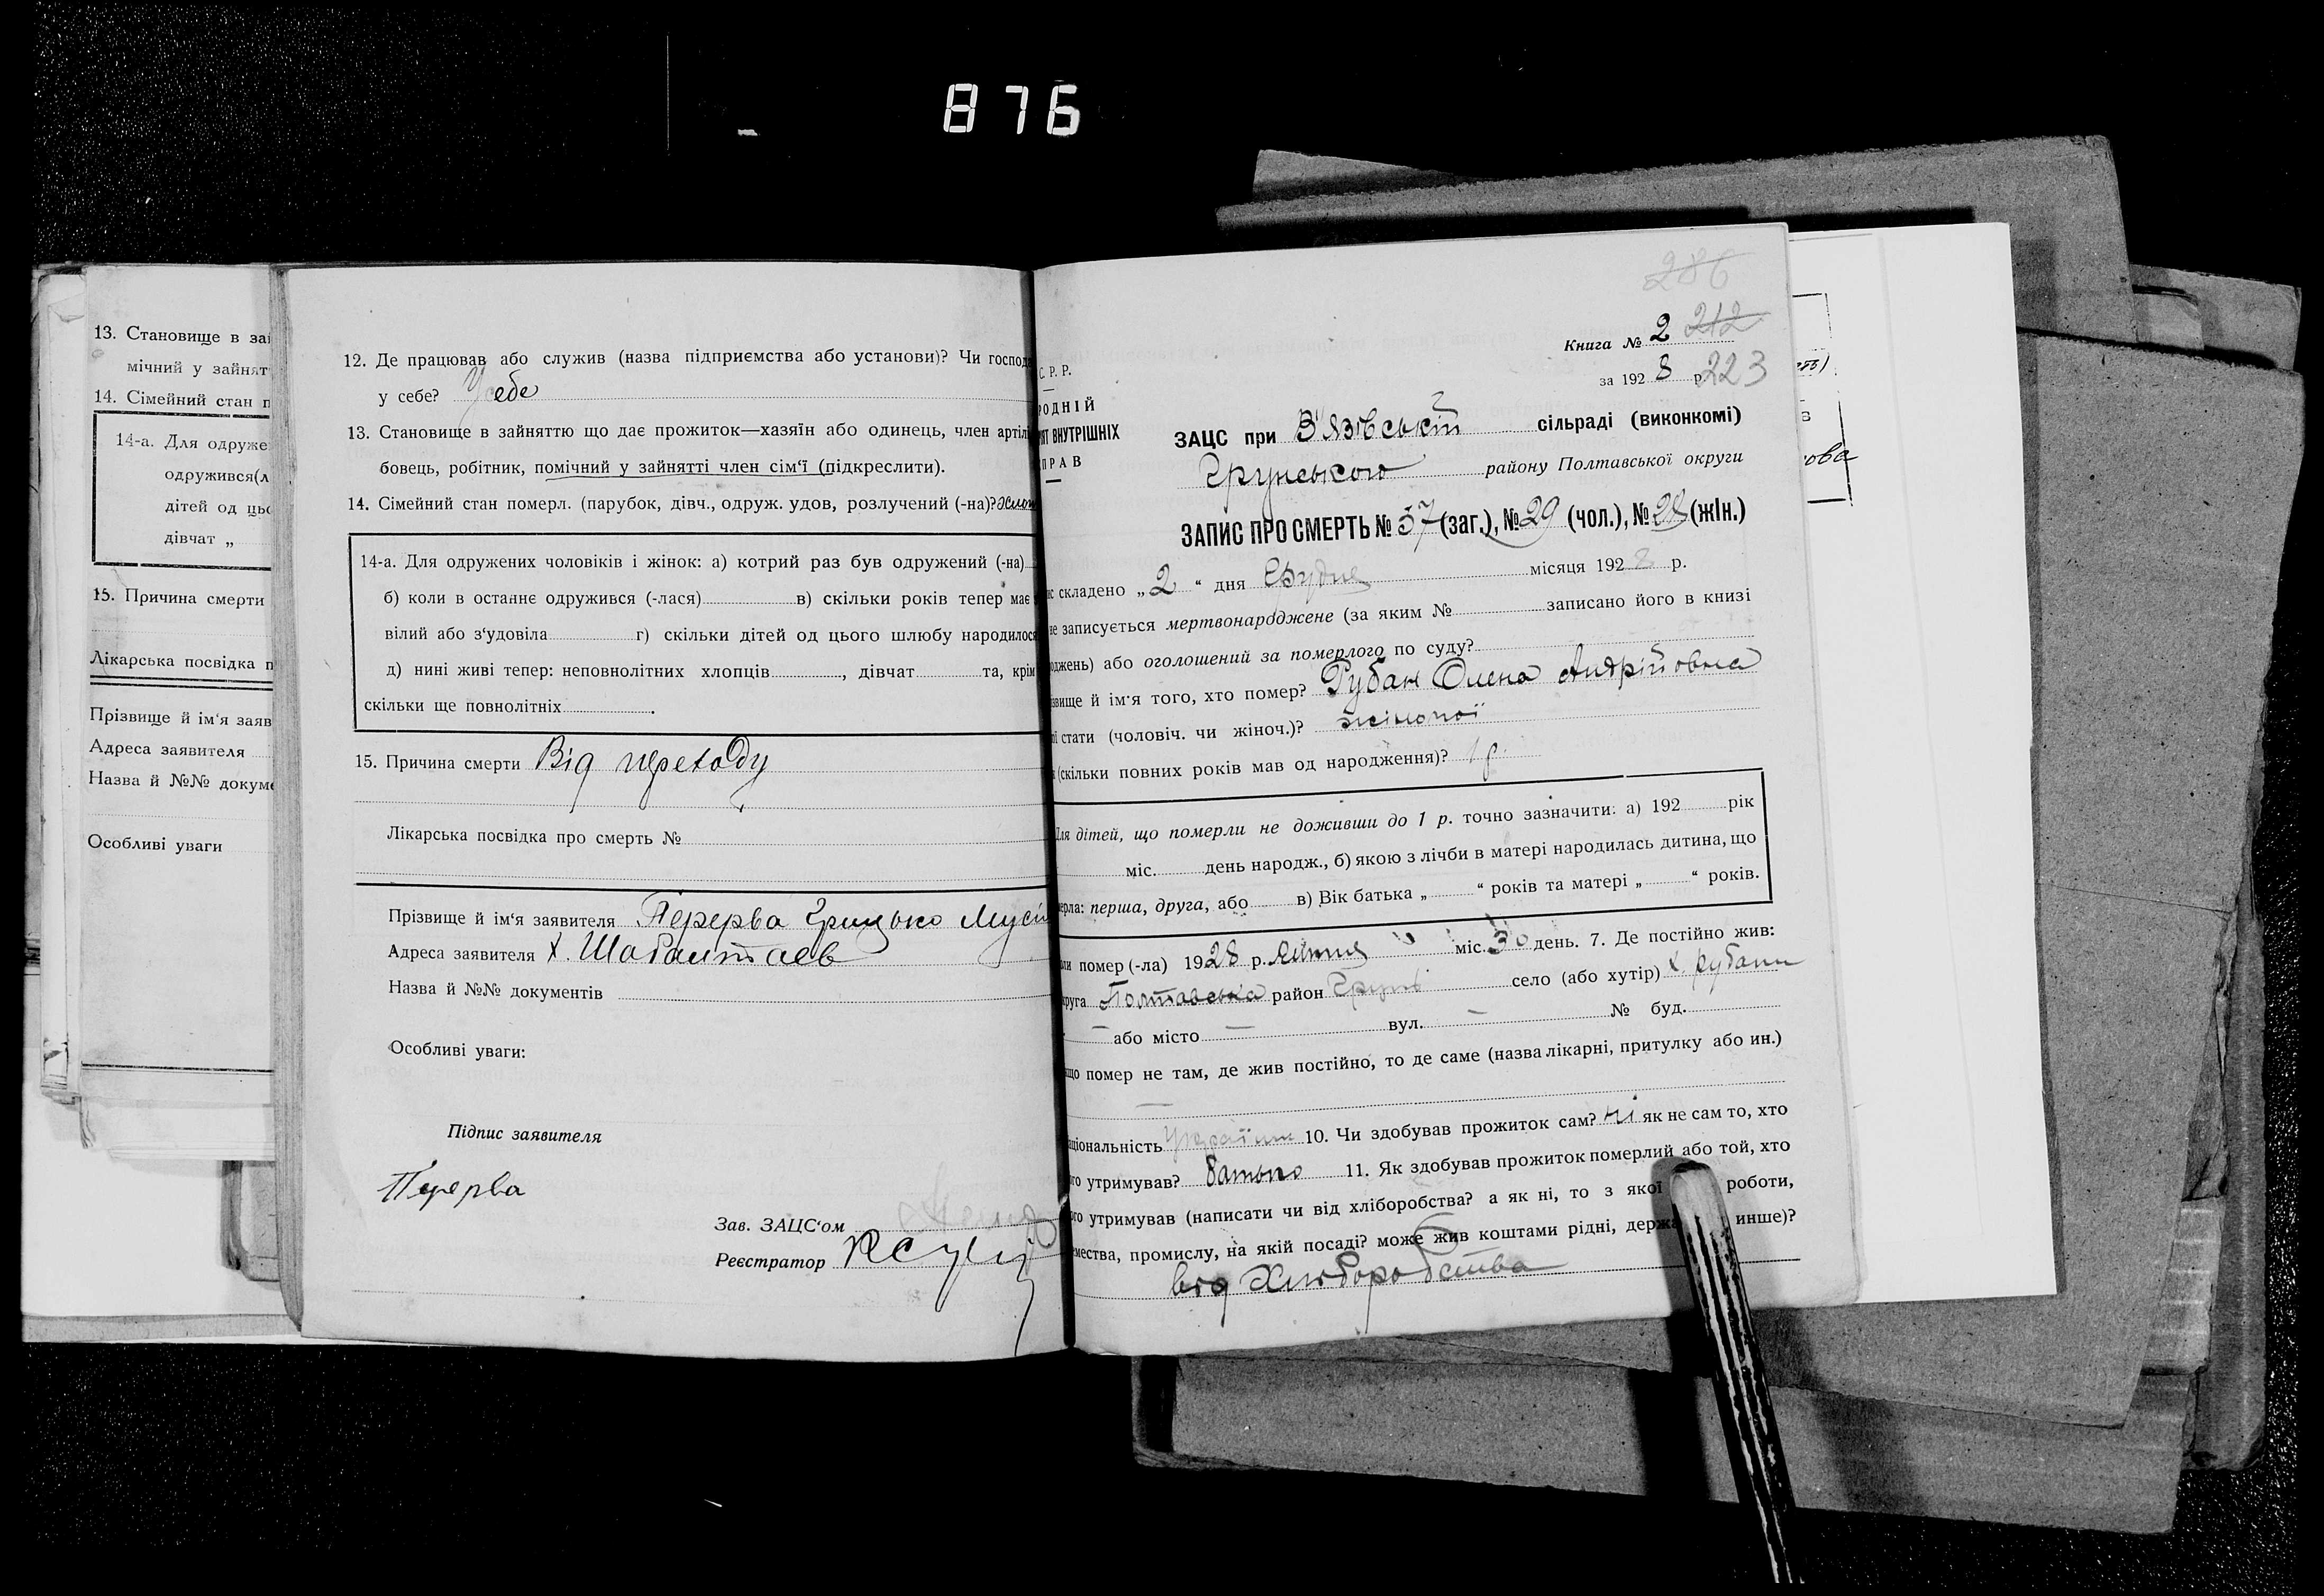 876
13. Становище в зай
мічний у зайнят
14. Сімейний стан п
14-а. Для одруже
одружився(л
дітей од цьо
дівчат „
15. Причина смерти
Лікарська посвідка п
Прізвище й ім‘я заяв
Адреса заявителя
Назва й №№ докуме
Особливі уваги
12. Де працював або служив (назва підприємства або установи)? Чи господ
у себе? Усебе
13. Становище в зайняттю що дає прожиток—хазяїн або одинець, член артіл
бовець, робітник, помічний у зайнятті член сім‘ї (підкреслити).
14. Сімейний стан померл. (парубок, дівч., одруж. удов, розлучений (-на)?
14-а. Для одружених чоловіків і жінок: а) котрий раз був одружений (-на)
б) коли в останнє одружився (-лася) в) скільки років тепер має
вілий або з‘удовіла г) скільки дітей од цього шлюбу народилося
д) нині живі тепер: неповнолітних хлопців , дівчат та, крім
скільки ще повнолітніх .
15. Причина смерти Від
Лікарська посвідка про смерть №
Прізвище й ім‘я заявителя Перерва Грицько Мусі
Адреса заявителя х.
Назва й №№ документів
Особливі уваги:
Підпис заявителя
Перерва
Зав. ЗАЦС‘ом
Реєстратор
286
Книга № 2 212
за 192 8 р. 223
С. Р. Р.
РОДНІЙ
ЯТ ВНУТРІШНІХ
ПРАВ
ЗАЦС при В'язівській сільраді (виконкомі)
Грунського району Полтавської округи
ЗАПИС ПРО СМЕРТЬ № 57 (заг.), № 29 (чол.), № 28 (жін.)
ис складено „ 2 “ дня Грудня місяця 192 8 р.
не записується мертвонароджене (за яким № записано його в книзі
оджень) або оголошений за померлого по суду?
звище й ім‘я того, хто помер? Рубан Олена Андрійовна
ї стати (чоловіч. чи жіноч.)? жіночої
(скільки повних років мав од народження)? 1 р.
Для дітей, що померли не доживши до 1 р. точно зазначити: а) 192 рік
міс. день народж., б) якою з лічби в матері народилась дитина, що
ерла: перша, друга, або в) Вік батька „ “ років та матері „ “ років.
ли помер (-ла) 1928 р. міс. 30 день. 7. Де постійно жив:
круга Полтавська район Грунь село (або хутір) х. рубани
— або місто — вул. — № буд.
що помер не там, де жив постійно, то де саме (назва лікарні, притулку або ин.)
—
ціональність 10. Чи здобував прожиток сам? ні як не сам то, хто
го утримував? батько 11. Як здобував прожиток померлий або той, хто
ого утримував (написати чи від хліборобства? а як ні, то з якої роботи,
емества, промислу, на якій посаді? може жив коштами рідні, держа инше)?
від Хліборобства
ова